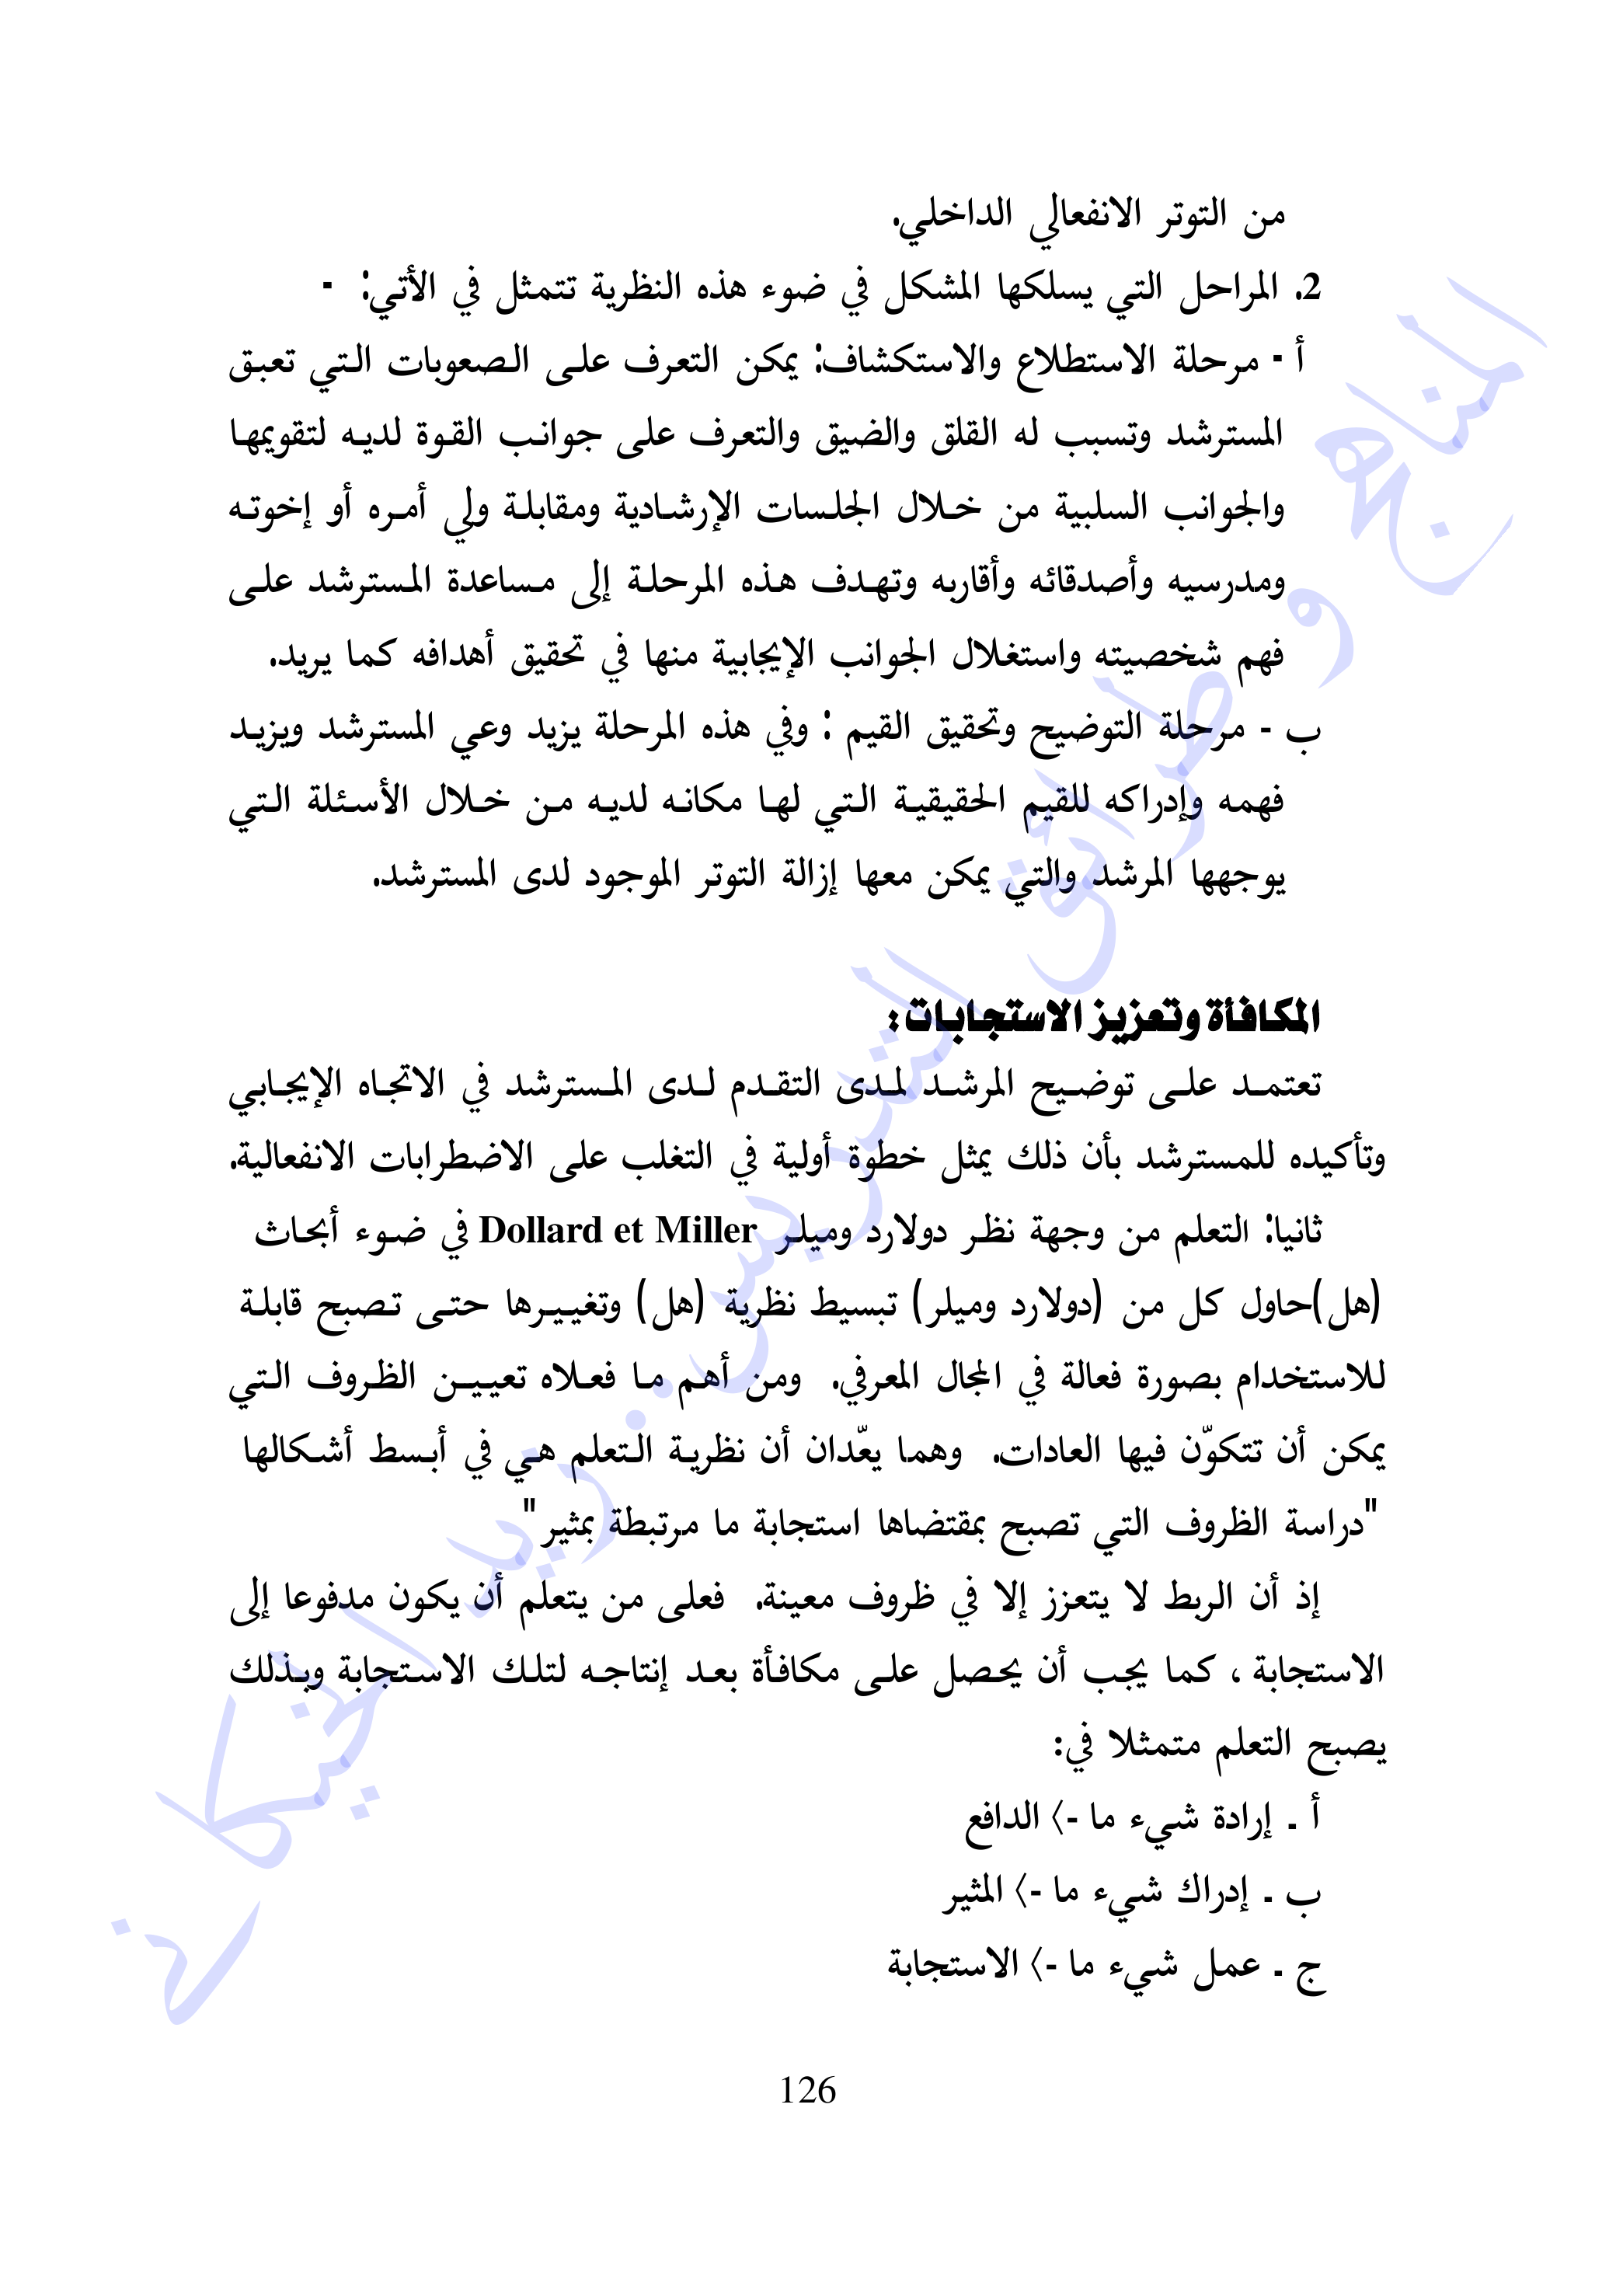 من التوتر الانفعالي الداخلي.
2. المراحل التي يسلكها المشكل في ضوء هذه النظرية تتمثل في الأتي: -
أ - مرحلة الاستطلاع والاستكشاف: يمكن التعرف على الصعوبات التي تعبق
المسترشد وتسبب له القلق والضيق والتعرف على جوانب القوة لديه لتقويمها
والجوانب السلبية من خلال الجلسات الإرشادية ومقابلة ولي أمره أو إخوته
ومدرسيه وأصدقائه وأقاربه وتهدف هذه المرحلة إلى مساعدة المسترشد على
فهم شخصيته واستغلال الجوانب الإيجابية منها في تحقيق أهدافه كما يريد.
ب - مرحلة التوضيح وتحقيق القيم : وفي هذه المرحلة يزيد وعي المسترشد ويزيد
فهمه وإدراكه للقيم الحقيقية التي لها مكانه لديه من خلال الأسئلة التي
يوجهها المرشد والتي يمكن معها إزالة التوتر الموجود لدى المسترشد.
المكافأة وتعزيز الاستجابات :
تعتمد على توضيح المرشد لمدى التقدم لدى المسترشد في الاتجاه الإيجابي
وتأكيده للمسترشد بأن ذلك يمثل خطوة أولية في التغلب على الاضطرابات الانفعالية.
ثانيا: التعلم من وجهة نظر دولارد وميلر Dollard et Miller في ضوء أبحاث
(هل)حاول كل من (دولارد وميلر) تبسيط نظرية (هل) وتغييرها حتى تصبح قابلة
للاستخدام بصورة فعالة في المجال المعرفي. ومن أهم ما فعلاه تعيين الظروف التي
يمكن أن تتكوّن فيها العادات. وهما يعّدان أن نظرية التعلم هي في أبسط أشكالها
"دراسة الظروف التي تصبح بمقتضاها استجابة ما مرتبطة بمثير"
إذ أن الربط لا يتعزز إلا في ظروف معينة. فعلى من يتعلم أن يكون مدفوعا إلى
الاستجابة ، كما يجب أن يحصل على مكافأة بعد إنتاجه لتلك الاستجابة وبذلك
يصبح التعلم متمثلا في:
أ ـ إرادة شيء ما -> الدافع
ب ـ إدراك شيء ما -> المثير
ج ـ عمل شيء ما -> الاستجابة
126